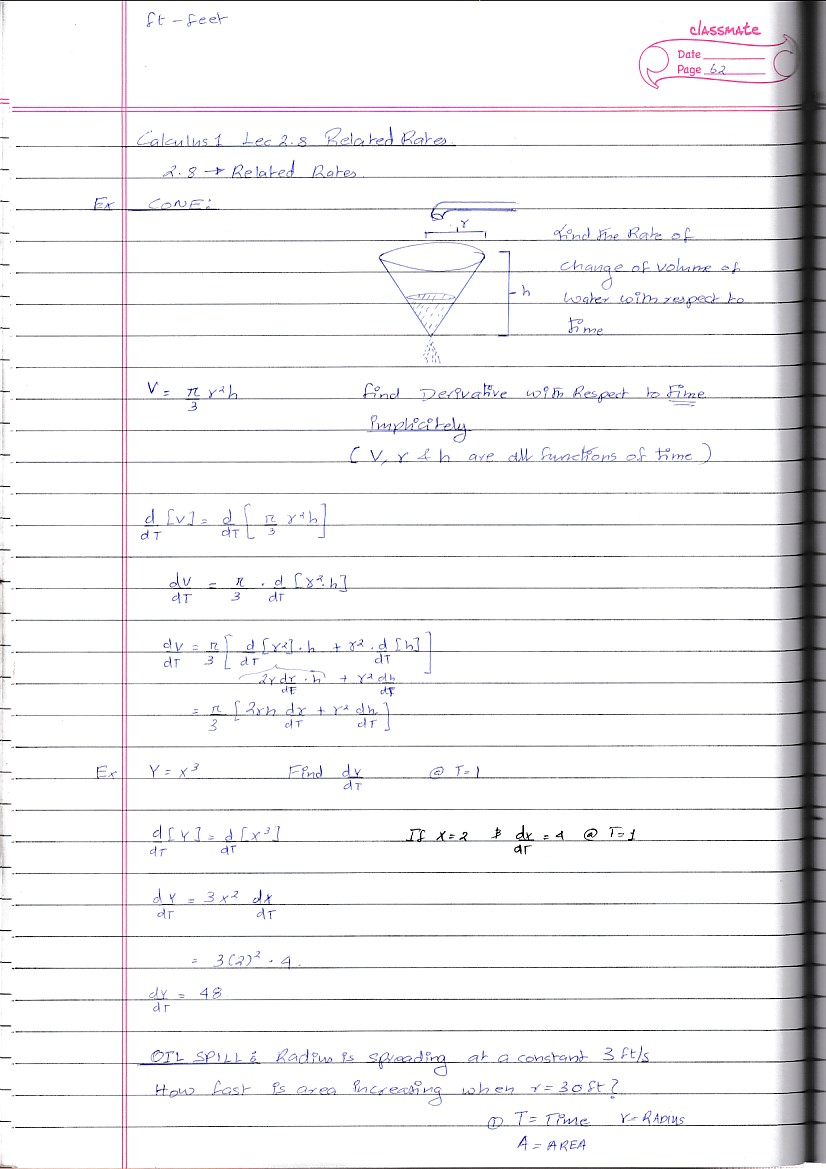 ft - feet
classmate
Date
Page 62
Calculus 1 Lec 2.8 Related Rates.
2.8 → Related Rates.
Ex CONE:
r
find the Rate of
change of volume of
h
water with respect to
time
V = π/3 r²h find Derivative with Respect to time
Implicitely
( V, r & h are all functions of time )
d/dT [V] = d/dT [ π/3 r²h ]
dV/dT = π/3 · d/dT [r².h]
dV/dT = π/3 [ d/dT [r²].h + r². d/dT [h] ]
2r dr/dt . h + r² dh/dt
= π/3 [ 2rh dr/dT + r² dh/dT ]
Ex Y = x³ Find dy/dT @ T=1
d/dT [Y] = d/dT [x³] If x=2 & dx/dT = 4 @ T=1
dY/dT = 3x² dx/dT
= 3(2)² · 4.
dy/dT = 48
OIL SPILL : Radius is spreading at a constant 3 ft/s
How fast is area increasing when r=30ft?
① T = Time r = RADIUS
A = AREA